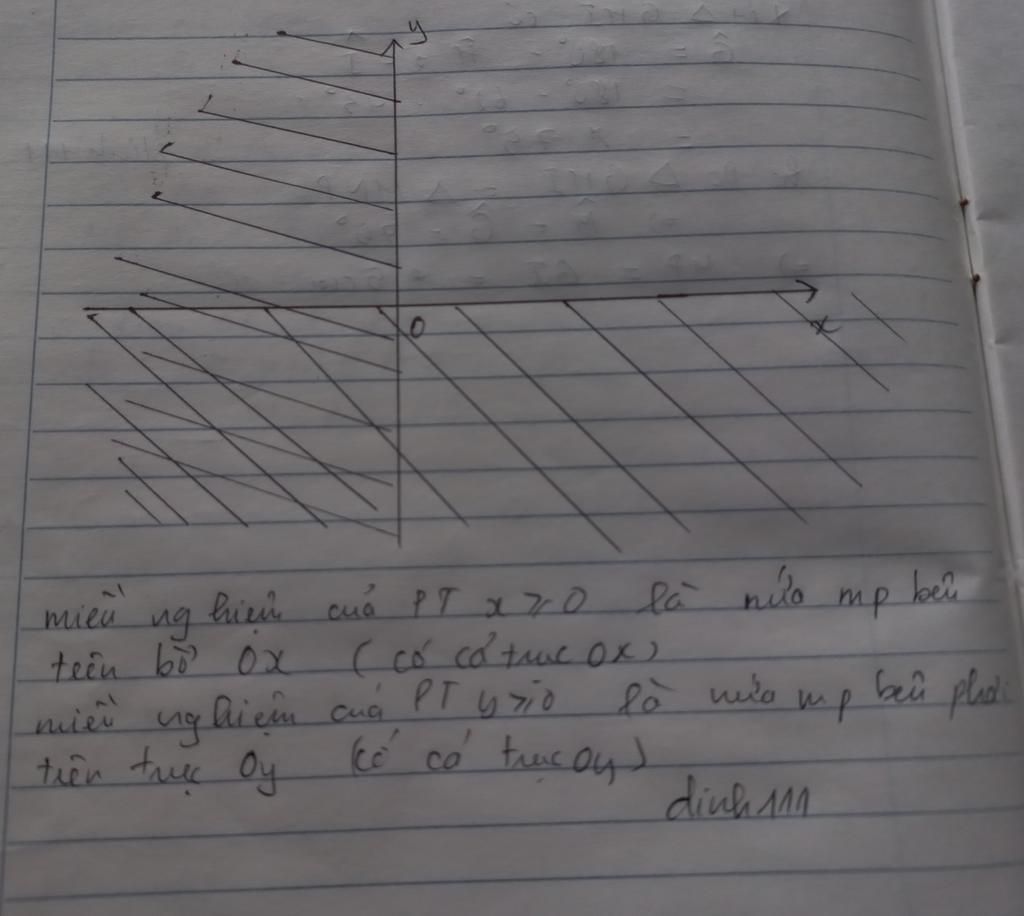 y
O
x
miền nghiệm của PT x ≥ 0 là nửa mp bên
trên bờ Ox (có cả trục Ox)
miền nghiệm của PT y ≥ 0 là nửa mp bên phải
trên trục Oy (có cả trục Oy)
dinh111